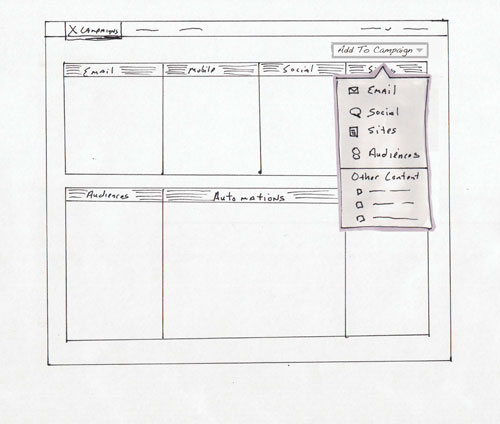 X Campaigns
Add To Campaign
Email Mobile Social
Email
Social
Sites
Audiences
Other Content
Audiences Automations